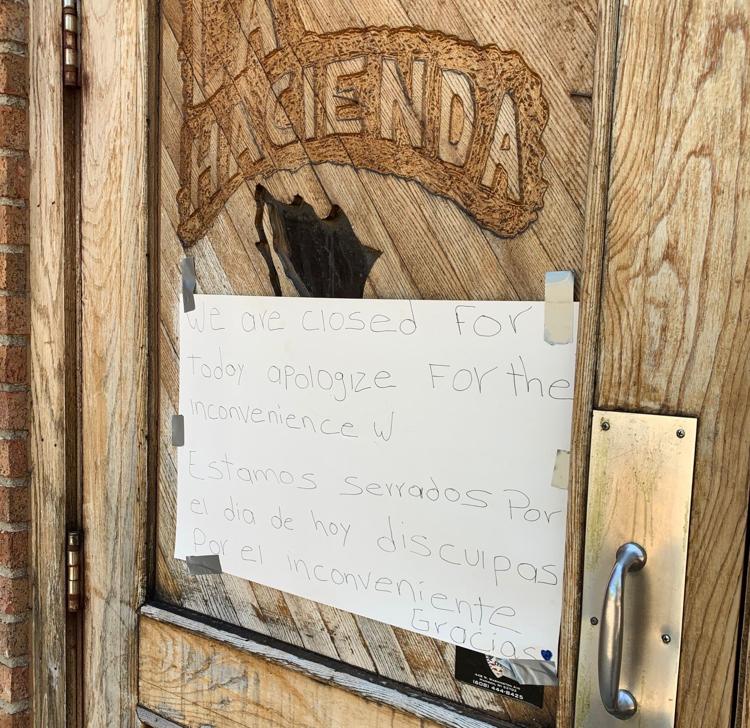 LA
HACIENDA
We are closed For
today apologize For the
inconvenience W
Estamos serrados Por
el dia de hoy disculpas
Por el inconveniente
Gracias
(608) 444-8425